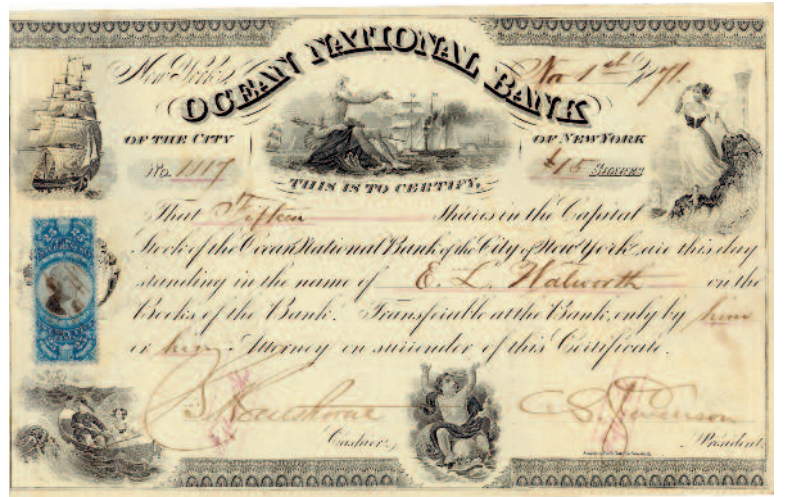 OCEAN NATIONAL BANK
New York, Nov 1st 1871.
OF THE CITY OF NEW YORK
No. 1117
15 SHARES
THIS IS TO CERTIFY,
That Fifteen Shares in the Capital
Stock of the Ocean National Bank of the City of New York, are this day
standing in the name of E. L. Walworth on the
Books of the Bank. Transferable at the Bank, only by him
or his Attorney on surrender of this Certificate.
Cashier,
President,
25 25